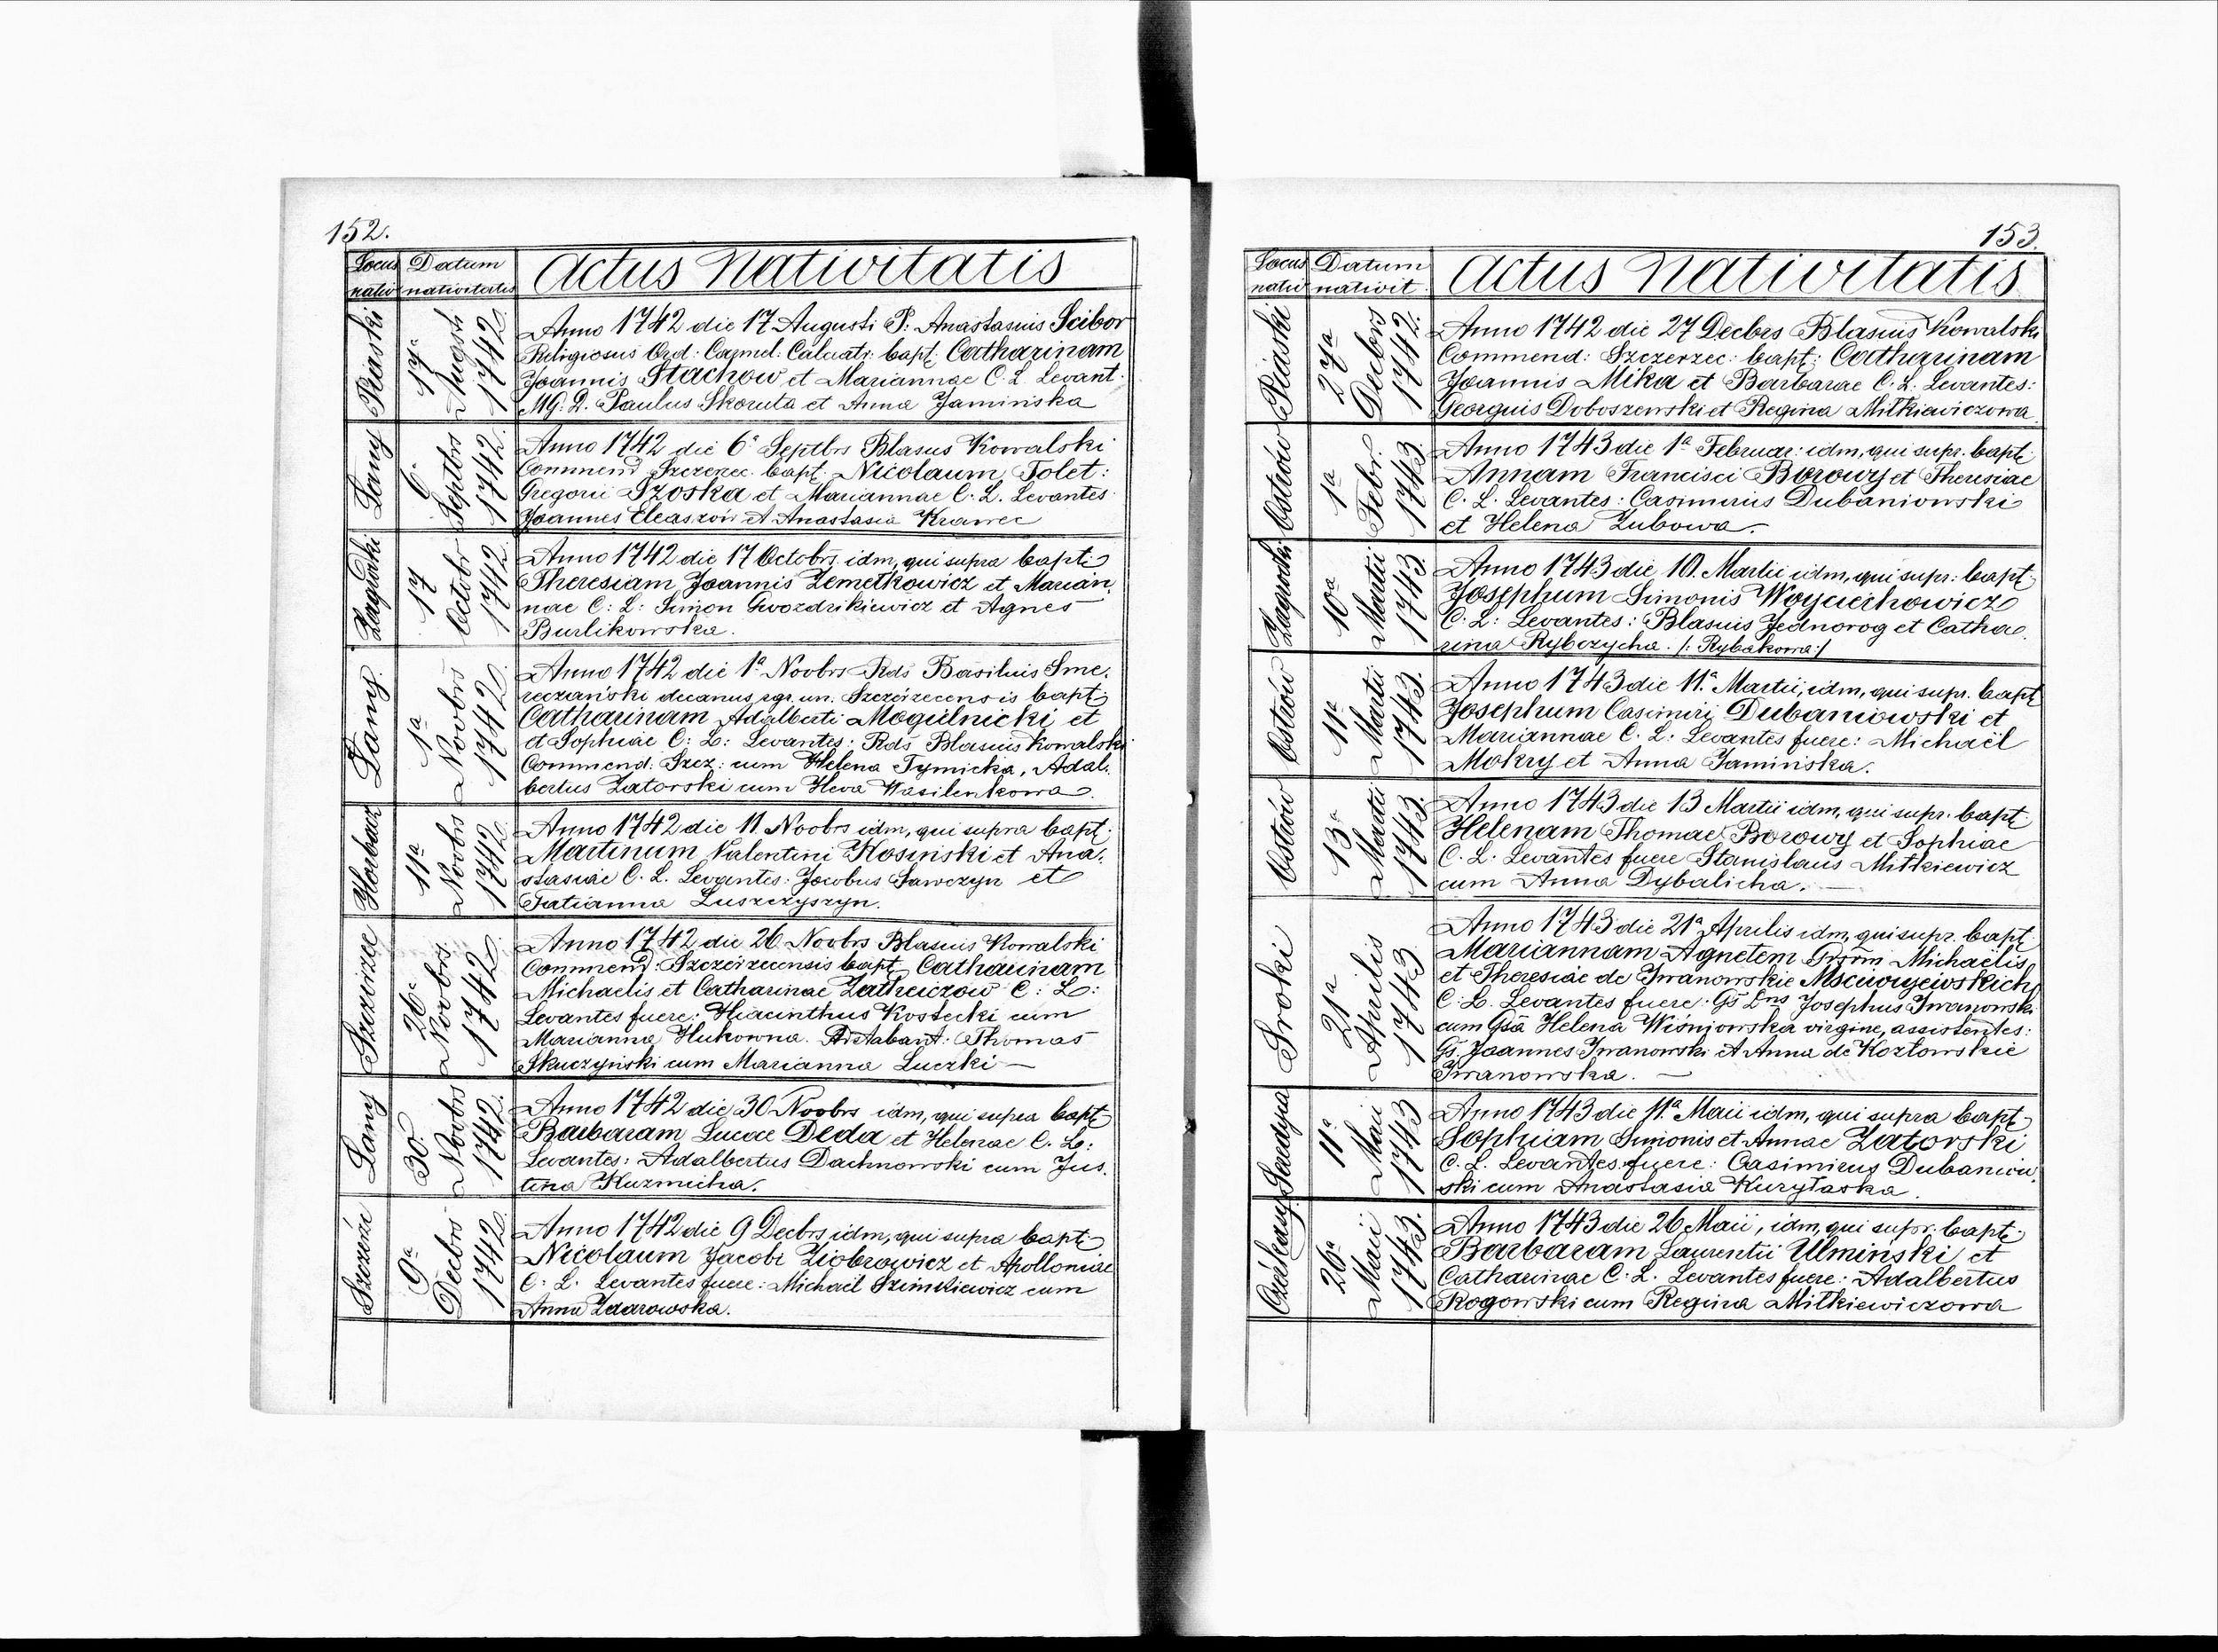 152.
Locus nativ
Datum nativitatis
Actus Nativitatis
Piaski
17ª Augusti 1742.
Anno 1742 die 17 Augusti P: Anastasius Scibor
Religiosus Ord: Carmel: Calceatr: bapt: Catharinam
Joannis Stachow et Mariannae C. L. Levant:
MG. D. Paulus Skoruta et Anna Jaminska
Łany
6ª Septbrs 1742.
Anno 1742 die 6ª Septbrs Blasius Kowalski
Commend Szczerzec. bapt: Nicolaum Tolet:
Gregorii Szoska et Mariannae C. L. Levantes
Joannes Eleaszów et Anastasia Krawec
Zagródki
17 Octobr 1742.
Anno 1742 die 17 Octobrs. idm, qui supra bapt:
Theresiam Joannis Zemetkowicz et Marian,
nae C: L: Simon Gwozdzikiewicz et Agnes
Burlikowska.
Łany.
1ª Novbrs 1742.
Anno 1742 die 1ª Novbrs Rds Basilius Sme,
reczański decanus rgr. un. Szczerzecensis bapt:
Catharinam Adalberti Mogilnicki et
et Sophiae C: L: Levantes: Rds Blasius Kowalski
Commend: Szcz: cum Helena Tymicka, Adal,
bertus Zatorski cum Heva Wasilenkowa.
Horbacz
11ª Novbrs 1742.
Anno 1742 die 11. Novbrs idm, qui supra bapt:
Martinum Valentini Kosinski et Ana,
stasiae C. L. Levantes: Jacobus Sawczyn et
Tatianna Łuszczyszyn.
Szczerzec
26ª Novbrs. 1742.
Anno 1742 die 26 Novbrs Blasius Kowalski
Commend: Szczerzecensis bapt: Catharinam
Michaelis et Catharinae Zatheiczow C: L:
Levantes fuere: Hiacinthus Kostecki cum
Marianna Hukowna. Adstabant: Thomas
Skuczyński cum Marianna Luczki —
Łany
30. Novbrs 1742.
Anno 1742 die 30 Novbrs idm, qui supra bapt:
Barbaram Lucae Deda et Helenae C. L:
Levantes: Adalbertus Dachnowski cum Jus,
tina Kuzmicha.
9ª Decbrs 1742.
Anno 1742 die 9 Decbrs idm, qui supra bapt:
Nicolaum Jacobi Ziobrowicz et Apolloniae
C: L. Levantes fuere: Michaël Szimkiewicz cum
Anna Zdarowska.
153.
Locus nativ
Datum nativit.
Actus Nativitatis
Piaski
27ª Decbrs 1742.
Anno 1742 die 27 Decbrs Blasius Kowalski
Commend: Szczerzec: bapt: Catharinam
Joannis Mika et Barbarae C. L: Levantes:
Georgius Doboszewski et Regina Mitkiewiczowa.
Ostrów
1ª Febr. 1743.
Anno 1743 die 1ª Februar: idm, qui supr. bapt:
Annam Francisci Borowy et Theresiae
C. L. Levantes: Casimirus Dubaniowski
et Helena Zubowa.—
Zagrodki
10ª Martii 1743.
Anno 1743 die 10. Martii idm, qui supr: bapt:
Josephum Simonis Woyciechowicz
C. L: Levantes: Blasius Jednorog et Catha,
rina Rybczycha. /: Rybakowa:/
Ostrów
11ª Martii 1743.
Anno 1743 die 11ª Martii, idm, qui supr. bapt:
Josephum Casimiri Dubaniowski et
Mariannae C. L. Levantes fuere: Michaël
Mokry et Anna Jaminska.
Ostrów
13ª Martii 1743.
Anno 1743 die 13 Martii idm, qui supr. bapt:
Helenam Thomae Borowy et Sophiae
C. L: Levantes fuere Stanislaus Mitkiewicz
cum Anna Dybalicha. —
Sroki
21ª Aprilis 1743
Anno 1743 die 21ª Aprilis idm, qui supr. bapt:
Mariannam Agnetem Grorm Michaelis
et Theresiae de Iwanowskie Msciwujewskich
C. L. Levantes fuere: Gs Dns Josephus Iwanowski
cum Gsa Helena Wiśniowska virgine, assistentes:
Gs. Joannes Iwanowski et Anna de Kozłowskie
Iwanowska. —
11ª Maii 1743
Anno 1743 die 11ª Maii idm, qui supra bapt:
Sophiam Simonis et Annae Zatorski
C. L. Levantes fuere: Casimirus Dubaniow,
ski cum Anastasia Kuryłaska.
26ª Maii 1743.
Anno 1743 die 26 Maii, idm, qui supr. bapt:
Barbaram Laurentii Ulminski et
Catharinae C. L. Levantes fuere: Adalbertus
Rogowski cum Regina Mitkiewiczowa